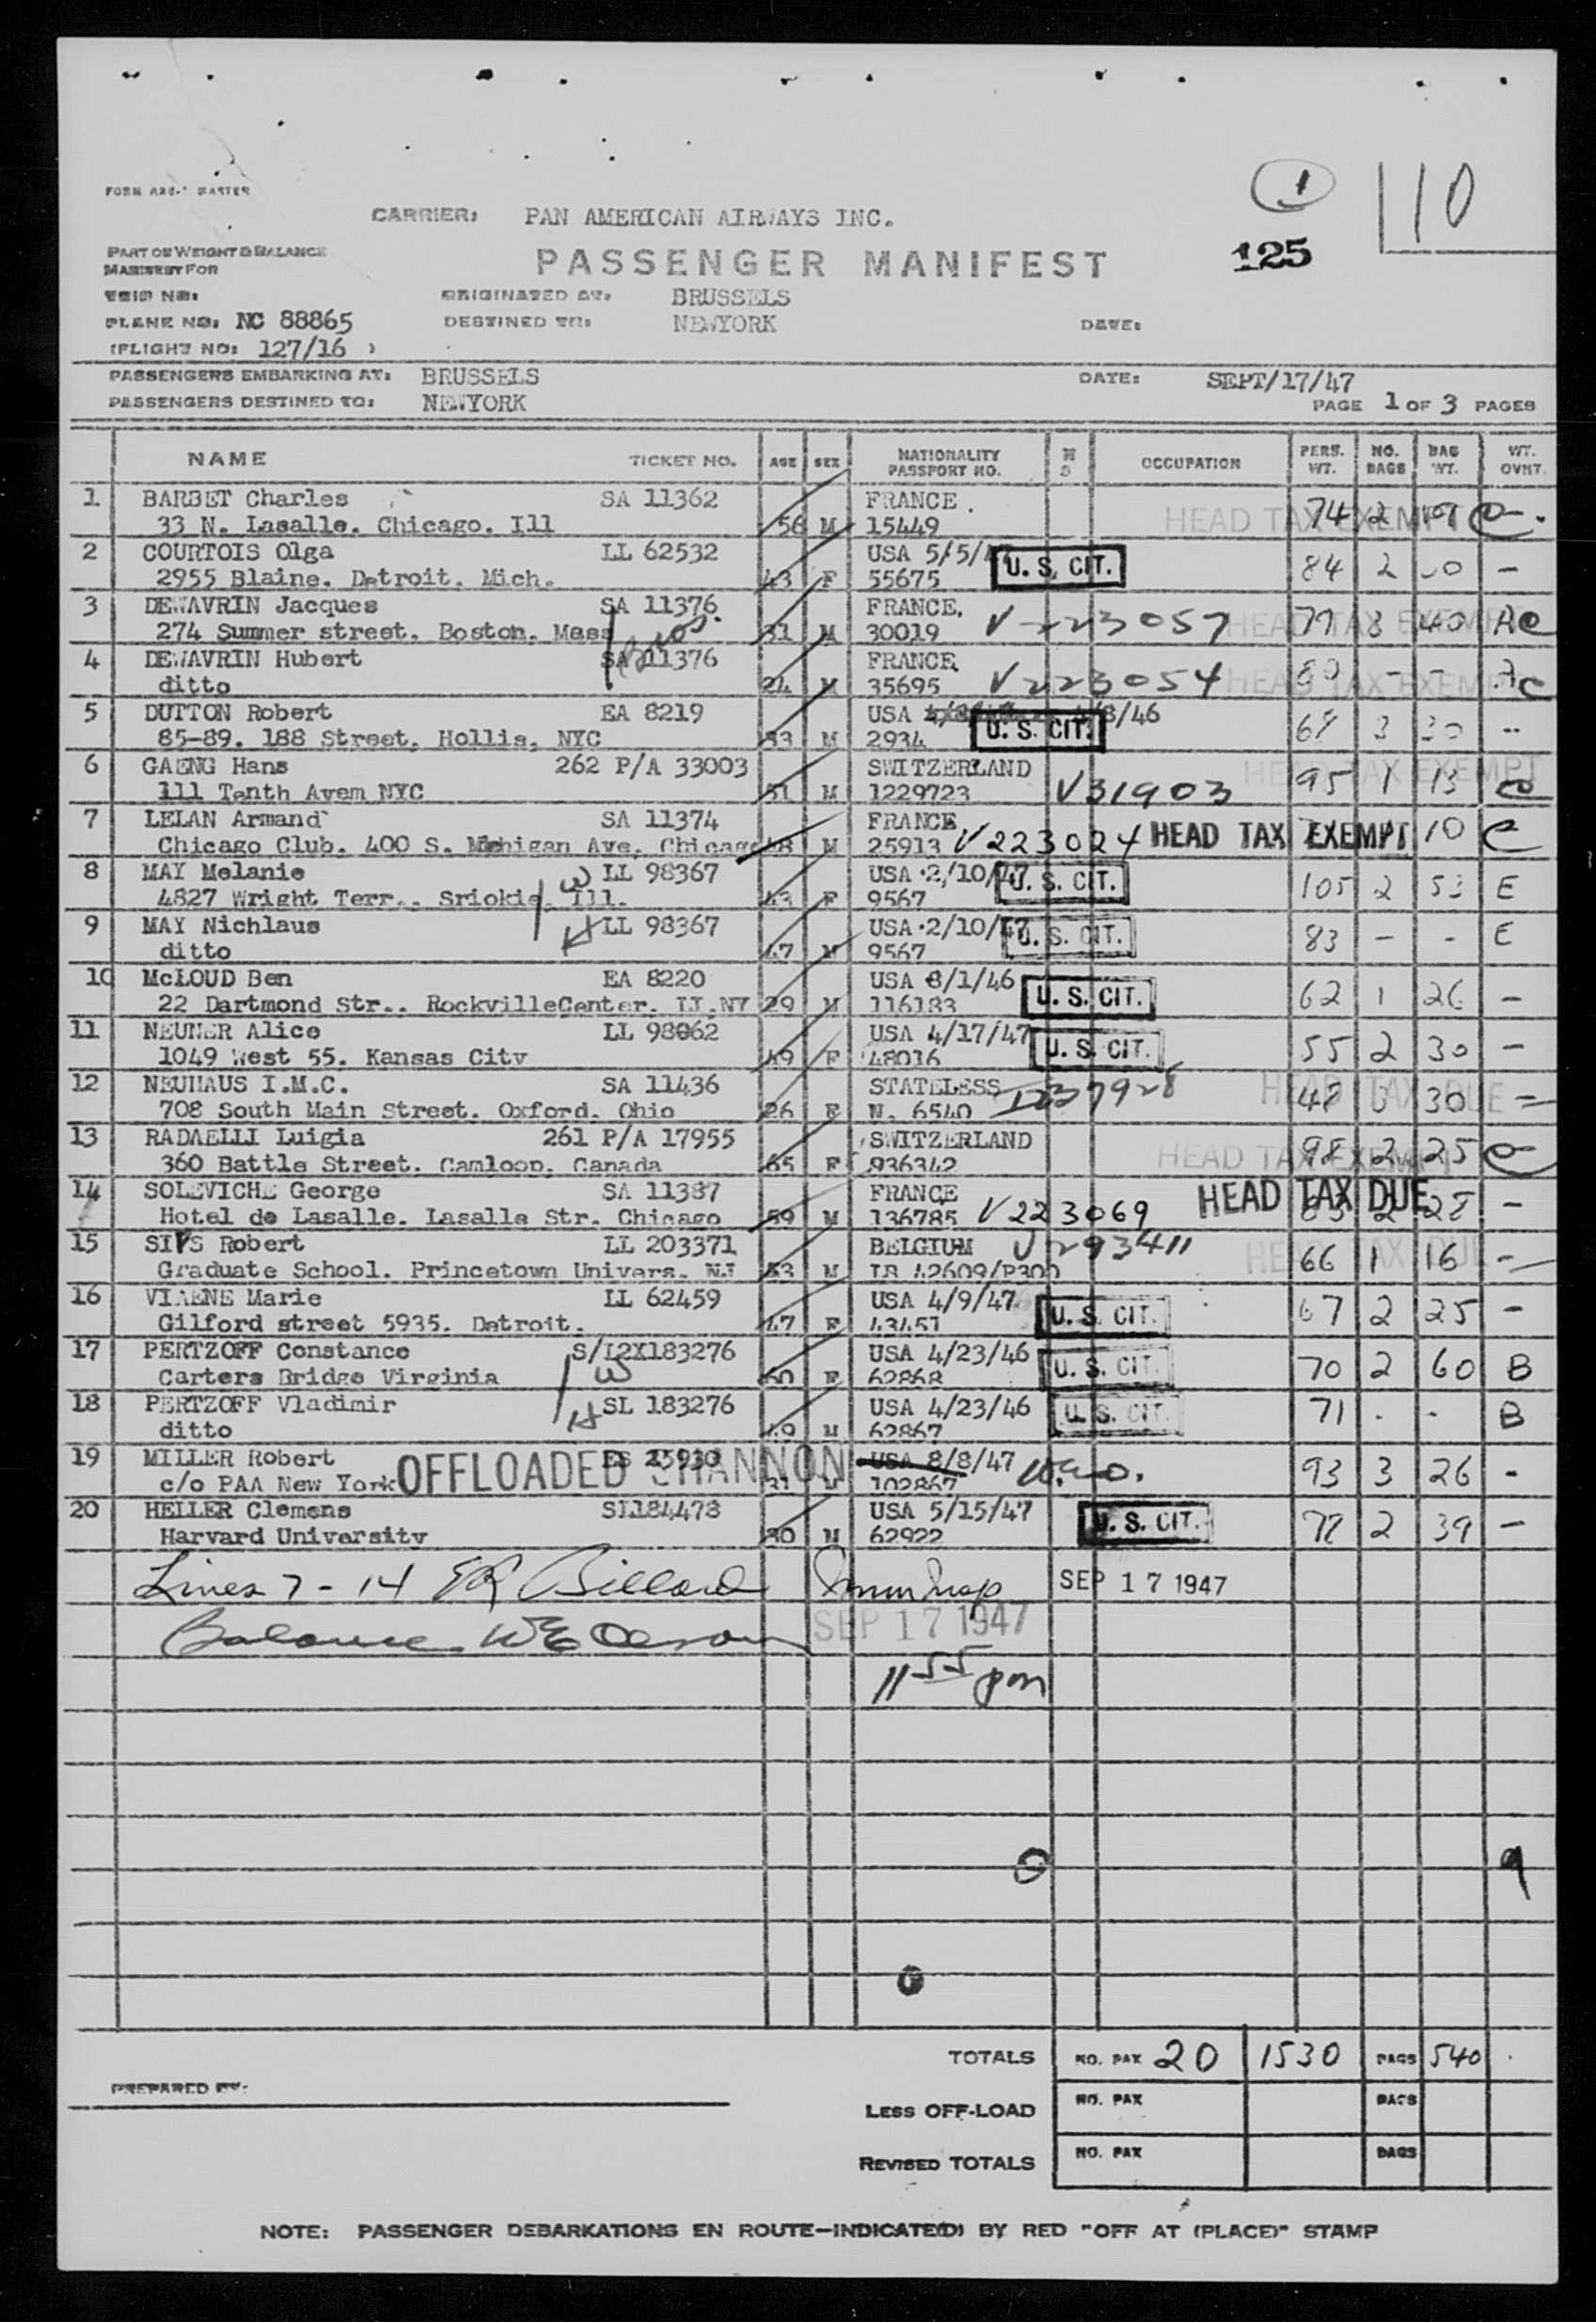 1
110
FORM
CARRIER: PAN AMERICAN AIRWAYS INC.
125
PART OF WEIGHT & BALANCE
MANIFEST FOR
PASSENGER MANIFEST
TRIP NO:
ORIGINATED AT: BRUSSELS
PLANE NO: NC 88865
DESTINED TO: NEWYORK
DATE:
(FLIGHT NO: 127/16 )
PASSENGERS EMBARKING AT: BRUSSELS DATE: SEPT/17/47
PASSENGERS DESTINED TO: NEWYORK PAGE 1 OF 3 PAGES
NAME TICKET NO. AGE SEX NATIONALITY PASSPORT NO. M S OCCUPATION PERS. WT. NO. BAGS BAG WT. WT. OVNT.
1 BARBET Charles SA 11362 FRANCE. HEAD TAX EXEMPT 74 2
33 N. Lasalle. Chicago. Ill 56 M 15449
2 COURTOIS Olga LL 62532 USA 5/5/47 U. S. CIT. 84 2 -
2955 Blaine. Detroit. Mich. 43 F 55675
3 DEWAVRIN Jacques SA 11376 FRANCE. V 223057 HEAD TAX EXEMPT 79 3 40 AC
274 Summer street. Boston. Mass Bros. 31 M 30019
4 DEWAVRIN Hubert SA 11376 FRANCE V223054 HEAD TAX EXEMPT - - AC
ditto 24 M 35695
5 DUTTON Robert EA 8219 USA 4/8/46 U. S. CIT. 68 3 30 --
85-89. 188 Street. Hollis. NYC 33 M 2934
6 GAENG Hans 262 P/A 33003 SWITZERLAND HEAD TAX EXEMPT 95 1 13
111 Tenth Avem NYC 51 M 1229723 V31903
7 LELAN Armand SA 11374 FRANCE V223024 HEAD TAX EXEMPT 10 C
Chicago Club. 400 S. Michigan Ave. Chicago 48 M 25913
8 MAY Melanie W LL 98367 USA 2/10/47 U. S. CIT. 105 2 53 E
4827 Wright Terr.. Sriokie. Ill. 43 F 9567
9 MAY Nichlaus H LL 98367 USA 2/10/47 U. S. CIT. 83 - - E
ditto 47 M 9567
10 McLOUD Ben EA 8220 USA 8/1/46 U. S. CIT. 62 1 26 -
22 Dartmond Str.. RockvilleCenter. LI.NY 29 M 116183
11 NEUNER Alice LL 98062 USA 4/17/47 U. S. CIT. 55 2 30 -
1049 West 55. Kansas City 49 F 48016
12 NEUHAUS I.M.C. SA 11436 STATELESS HEAD TAX DUE 48 3 30 -
708 South Main Street. Oxford. Ohio 26 F N. 6540
13 RADAELLI Luigia 261 P/A 17955 SWITZERLAND HEAD TAX EXEMPT 98 2 25
360 Battle Street. Camloop. Canada 65 F 936342
14 SOLEVICHE George SA 11387 FRANCE V223069 HEAD TAX DUE 2 28 -
Hotel de Lasalle. Lasalle Str. Chicago 59 M 136785
15 SIPS Robert LL 203371 BELGIUM V293411 HEAD TAX DUE 66 1 16 -
Graduate School. Princetown Univers. NJ 33 M LB 42609/P300
16 VIAENE Marie LL 62459 USA 4/9/47 U. S. CIT. 67 2 25 -
Gilford street 5935. Detroit. 47 F 43451
17 PERTZOFF Constance S/L2X183276 USA 4/23/46 U. S. CIT. 70 2 60 B
Carters Bridge Virginia W 50 F 62868
18 PERTZOFF Vladimir H SL 183276 USA 4/23/46 U. S. CIT. 71 - - B
ditto 49 M 62867
19 MILLER Robert ES 25930 OFFLOADED SHANNON USA 8/8/47 93 3 26 -
c/o PAA New York 31 M 102867
20 HELLER Clemens SL184478 USA 5/15/47 U. S. CIT. 77 2 39 -
Harvard University 30 M 62922
Lines 7 - 14 ER Billard Immn Insp SEP 17 1947
Balance WE Olson SEP 17 1947
11 55 pm
9
TOTALS NO. PAX 20 1530 BAGS 540
PREPARED BY:
LESS OFF-LOAD NO. PAX BAGS
REVISED TOTALS NO. PAX BAGS
NOTE: PASSENGER DEBARKATIONS EN ROUTE—INDICATE(D) BY RED "OFF AT (PLACE)" STAMP